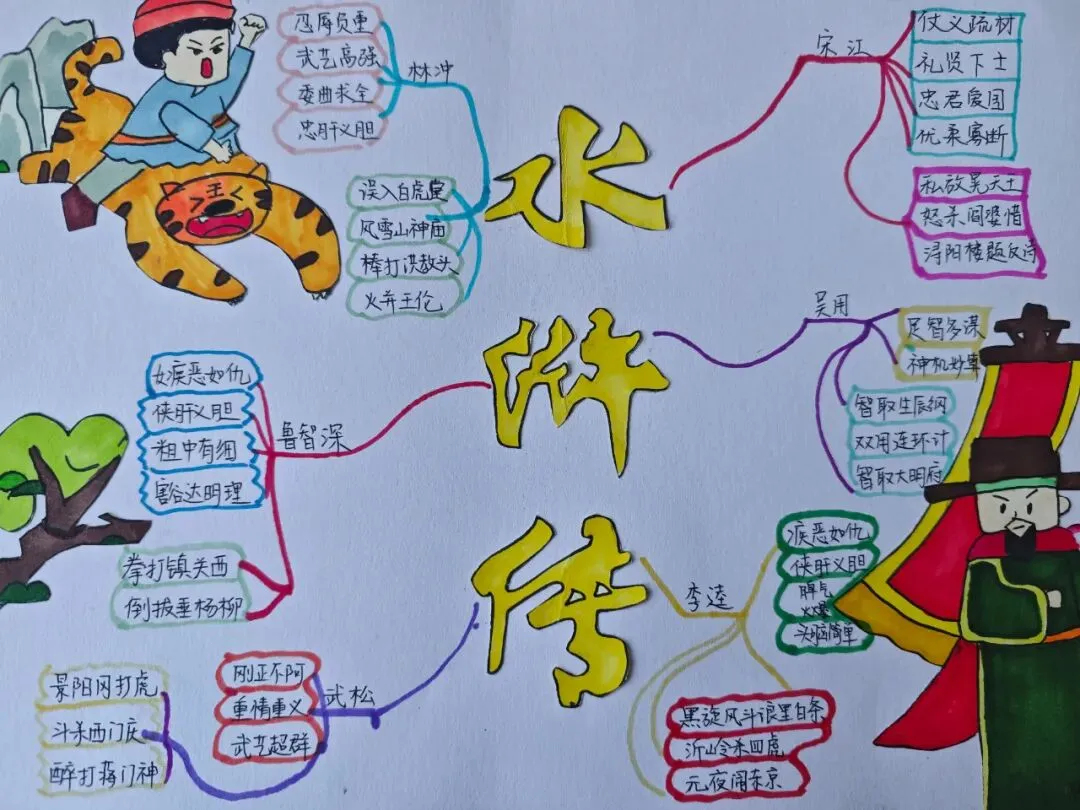 水
浒
传
林冲
忍辱负重
武艺高强
委曲求全
忠肝义胆
误入白虎堂
风雪山神庙
棒打洪教头
火并王伦
宋江
仗义疏材
礼贤下士
忠君爱国
优柔寡断
私放晁天王
怒杀阎婆惜
浔阳楼题反诗
吴用
足智多谋
神机妙算
智取生辰纲
双用连环计
智取大明府
鲁智深
嫉恶如仇
侠肝义胆
粗中有细
豁达明理
拳打镇关西
倒拔垂杨柳
李逵
疾恶如仇
侠肝义胆
脾气
火爆
头脑简单
黑旋风斗浪里白条
沂岭杀四虎
元夜闹东京
武松
刚正不阿
重情重义
武艺超群
景阳冈打虎
斗杀西门庆
醉打蒋门神
王